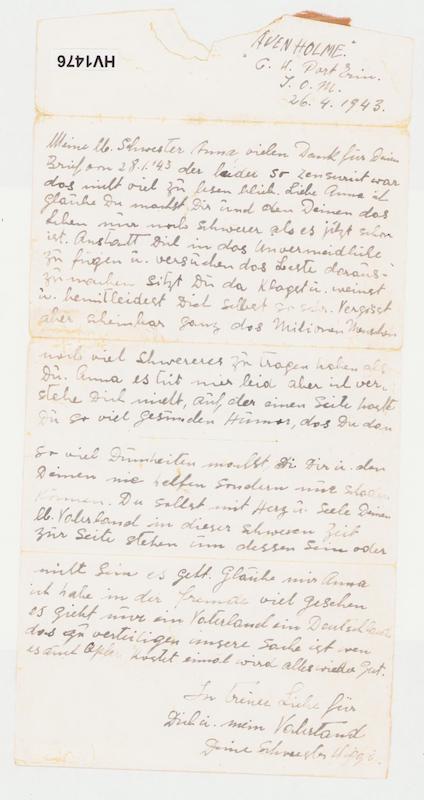 HV1476
"AVENHOLME."
C. H. Port Erin.
I. O. M.
26. 4. 1943.
Meine lb. Schwester Anna vielen Dank für Dein
Brief, vom 28.1.'43 der leider so zensuriert war
das nicht viel zu lesen blieb. Liebe Anna ich
glaube Du machst Dir und den Deinen das
Leben nur noch schwerer als es jetzt schon
ist. Anstatt Dich in das Unvermeidliche
zu fügen u. versuchen das Beste daraus
zu machen sitzt Du da klagst u. weinst
u. bemitleidest Dich selbst so sehr. Vergisst
aber scheinbar ganz das Millionen Menschen
noch viel schwereres zu tragen haben als
Du. Anna es tut mir leid aber ich ver-
stehe Dich nicht, auf der einen Seite hast
Du so viel gesunden Humor, das Du dan
so viel Dummheiten machst Di Dir u. den
Deinen nie helfen sondern nur schaden
können. Du sollst mit Herz u. Seele Deinem
lb. Vaterland in dieser schweren Zeit
zur Seite stehen um dessen Sein oder
nicht Sein es geht. Glaube mir Anna
ich habe in der Fremde viel gesehen
es giebt nur ein Vaterland ein Deutschland
das zu verteidigen unsere Sache ist wen
es auch Opfer kostet einmal wird alles wieder gut.
In treuer Liebe für
Dich u. mein Vaterland
Deine Schwester